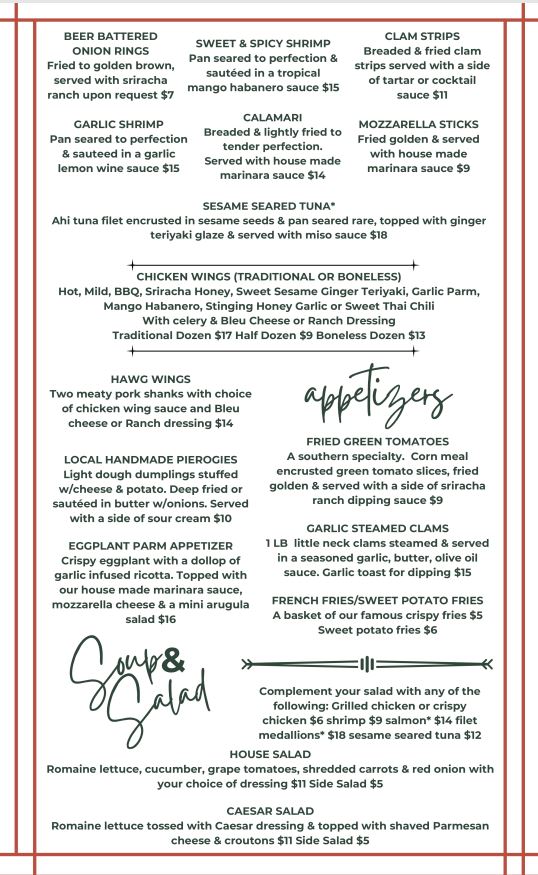 BEER BATTERED
ONION RINGS
Fried to golden brown,
served with sriracha
ranch upon request $7
SWEET & SPICY SHRIMP
Pan seared to perfection &
sautéed in a tropical
mango habanero sauce $15
CLAM STRIPS
Breaded & fried clam
strips served with a side
of tartar or cocktail
sauce $11
GARLIC SHRIMP
Pan seared to perfection
& sauteed in a garlic
lemon wine sauce $15
CALAMARI
Breaded & lightly fried to
tender perfection.
Served with house made
marinara sauce $14
MOZZARELLA STICKS
Fried golden & served
with house made
marinara sauce $9
SESAME SEARED TUNA*
Ahi tuna filet encrusted in sesame seeds & pan seared rare, topped with ginger
teriyaki glaze & served with miso sauce $18
CHICKEN WINGS (TRADITIONAL OR BONELESS)
Hot, Mild, BBQ, Sriracha Honey, Sweet Sesame Ginger Teriyaki, Garlic Parm,
Mango Habanero, Stinging Honey Garlic or Sweet Thai Chili
With celery & Bleu Cheese or Ranch Dressing
Traditional Dozen $17 Half Dozen $9 Boneless Dozen $13
HAWG WINGS
Two meaty pork shanks with choice
of chicken wing sauce and Bleu
cheese or Ranch dressing $14
LOCAL HANDMADE PIEROGIES
Light dough dumplings stuffed
w/cheese & potato. Deep fried or
sautéed in butter w/onions. Served
with a side of sour cream $10
EGGPLANT PARM APPETIZER
Crispy eggplant with a dollop of
garlic infused ricotta. Topped with
our house made marinara sauce,
mozzarella cheese & a mini arugula
salad $16
appetizers
FRIED GREEN TOMATOES
A southern specialty. Corn meal
encrusted green tomato slices, fried
golden & served with a side of sriracha
ranch dipping sauce $9
GARLIC STEAMED CLAMS
1 LB little neck clams steamed & served
in a seasoned garlic, butter, olive oil
sauce. Garlic toast for dipping $15
FRENCH FRIES/SWEET POTATO FRIES
A basket of our famous crispy fries $5
Sweet potato fries $6
Soup&
Salad
Complement your salad with any of the
following: Grilled chicken or crispy
chicken $6 shrimp $9 salmon* $14 filet
medallions* $18 sesame seared tuna $12
HOUSE SALAD
Romaine lettuce, cucumber, grape tomatoes, shredded carrots & red onion with
your choice of dressing $11 Side Salad $5
CAESAR SALAD
Romaine lettuce tossed with Caesar dressing & topped with shaved Parmesan
cheese & croutons $11 Side Salad $5